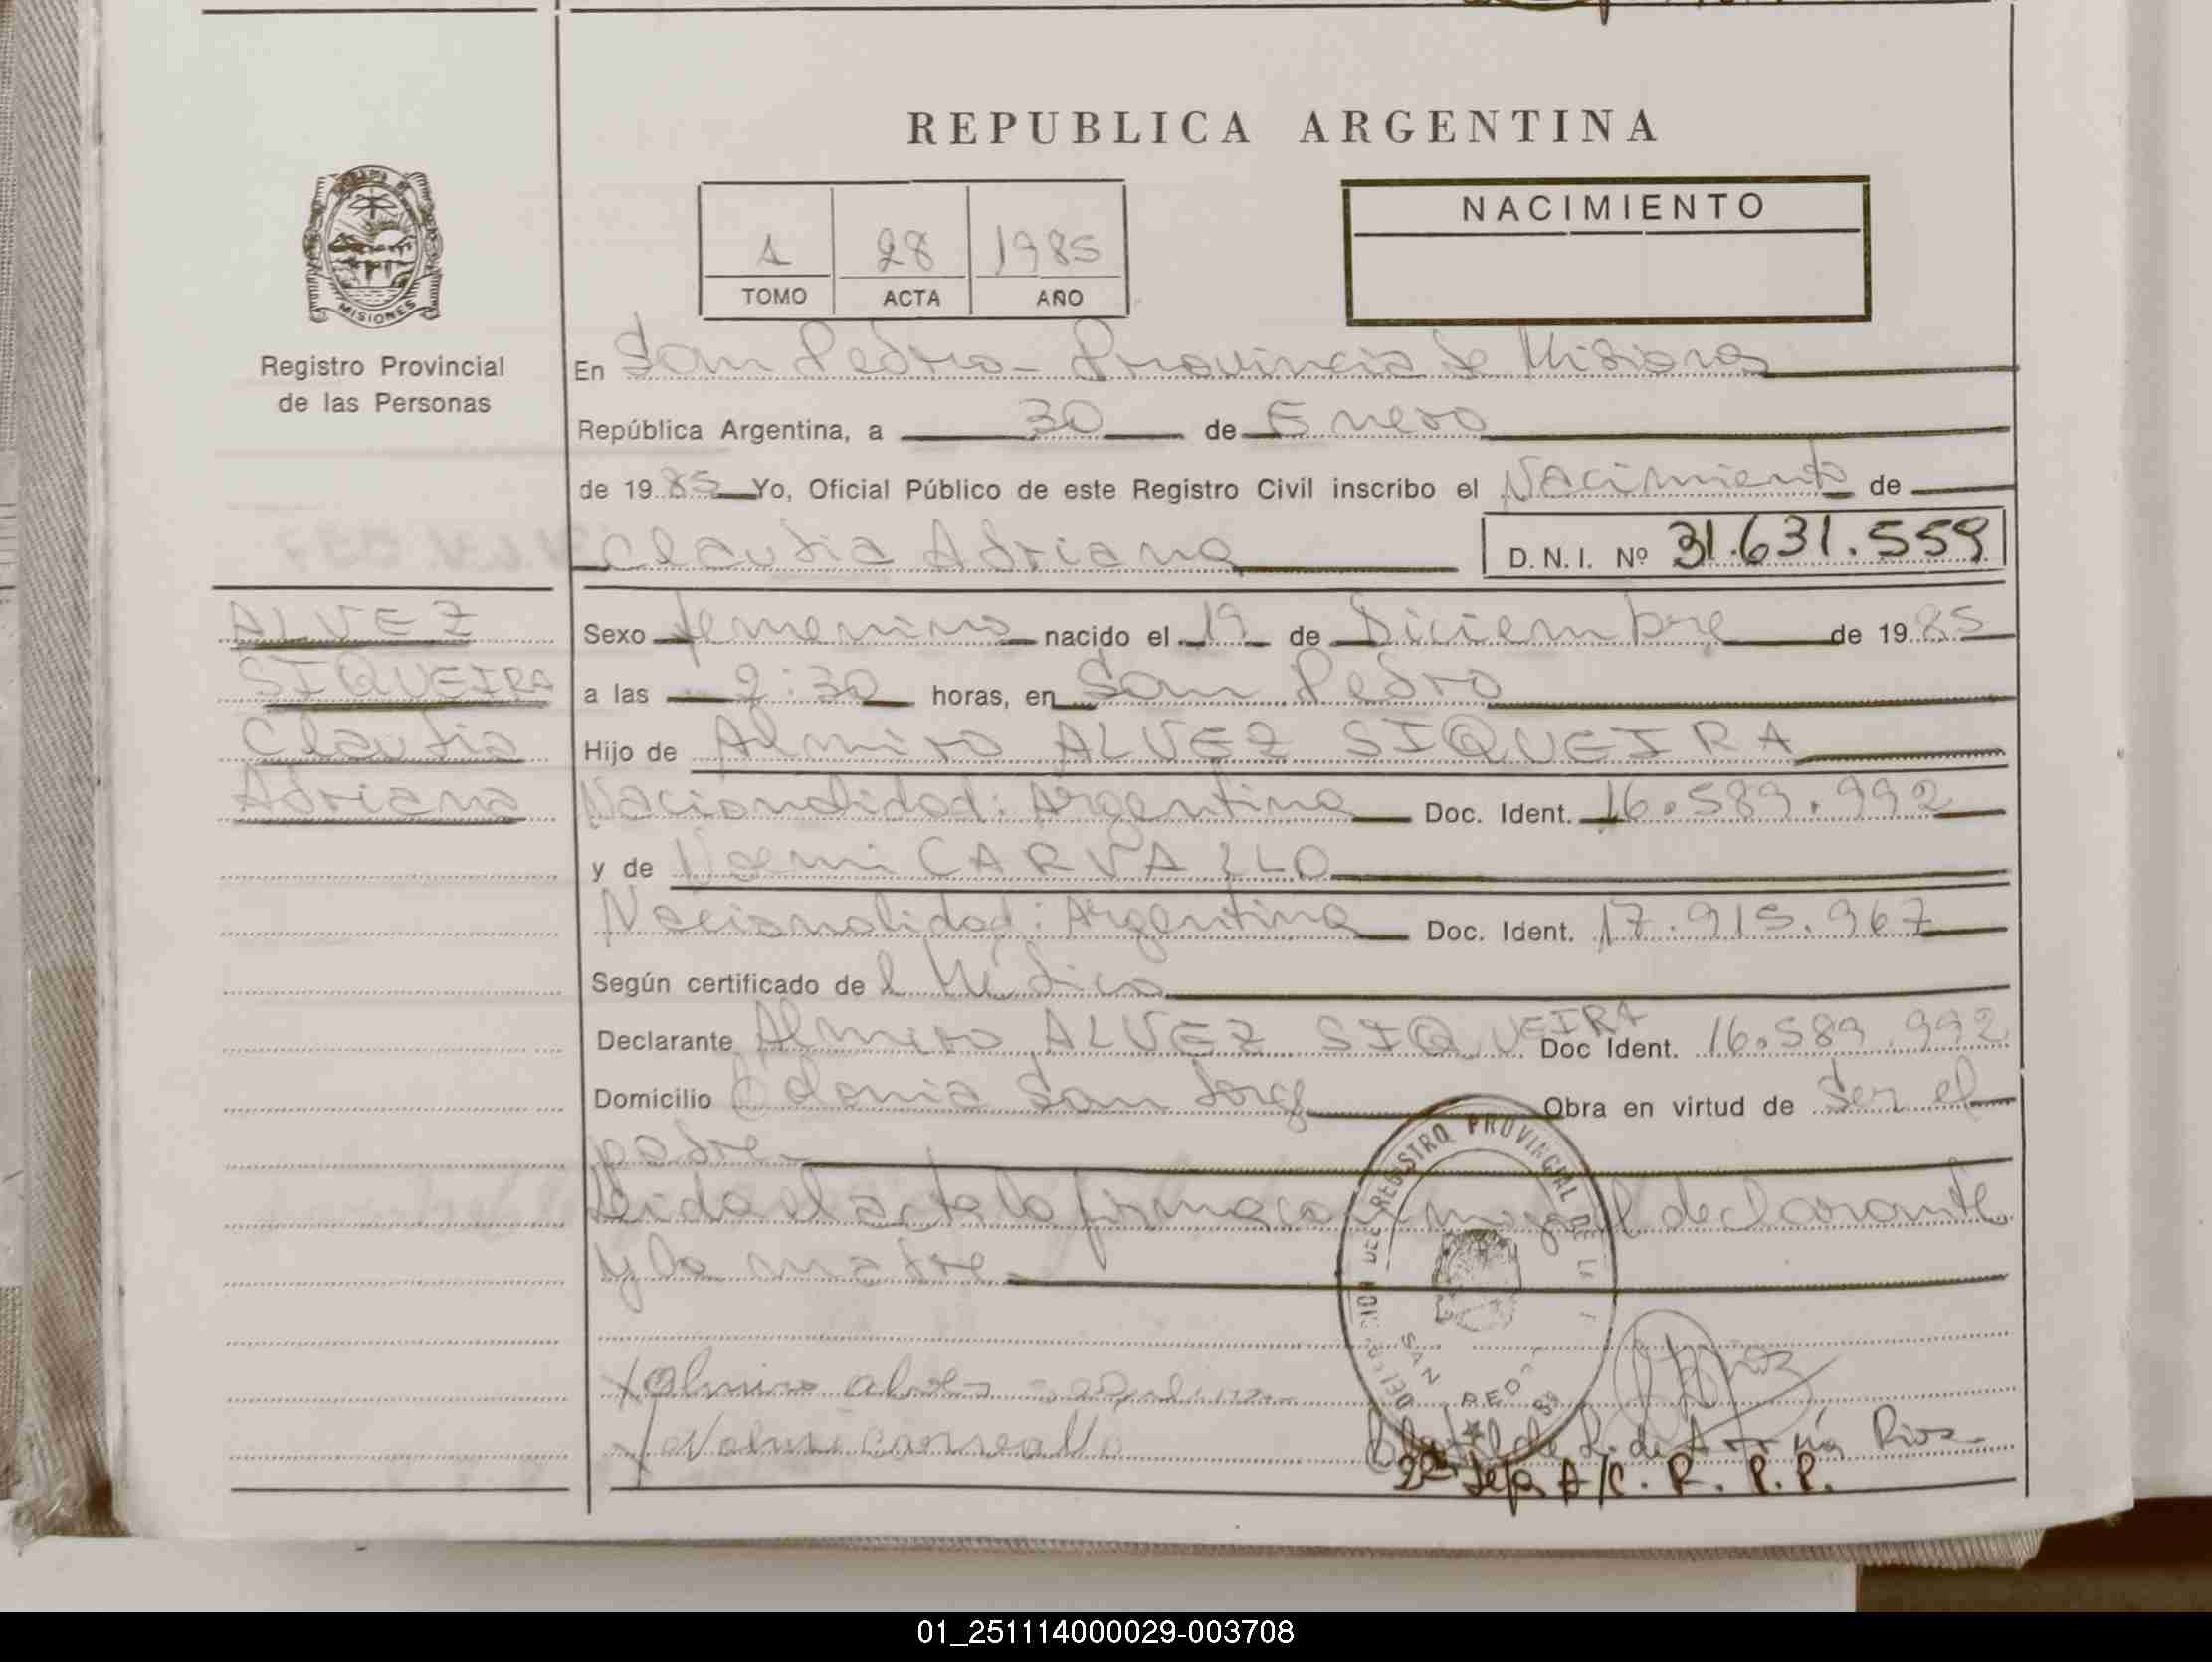 REPUBLICA ARGENTINA
MISIONES
Registro Provincial
de las Personas
1 28 1985
TOMO ACTA AÑO
NACIMIENTO
En San Pedro - Provincia de Misiones
República Argentina, a 30 de Enero
de 1985 Yo, Oficial Público de este Registro Civil inscribo el Nacimiento de
Claudia Adriana D.N.I. Nº 31.631.559
ALVEZ
SIQUEIRA
Claudia
Adriana
Sexo femenino nacido el 19 de Diciembre de 1985
a las 2:30 horas, en San Pedro
Hijo de Almiro ALVEZ SIQUEIRA
Nacionalidad: Argentina Doc. Ident. 16.589.992
y de Noemi CARVALLO
Nacionalidad: Argentina Doc. Ident. 17.915.967
Según certificado del Médico
Declarante Almiro ALVEZ SIQUEIRA Doc Ident. 16.589.992
Domicilio Colonia San Jorge Obra en virtud de Ser el
padre.
Leida el acta la firma conmigo el declarante
y la madre.
REGISTRO PROVINCIAL DE
SAN PEDRO
Almiro alves
Noemi carvallo
de L. de Ríos
2da Jefa A/C. R. P. P.
01_251114000029-003708